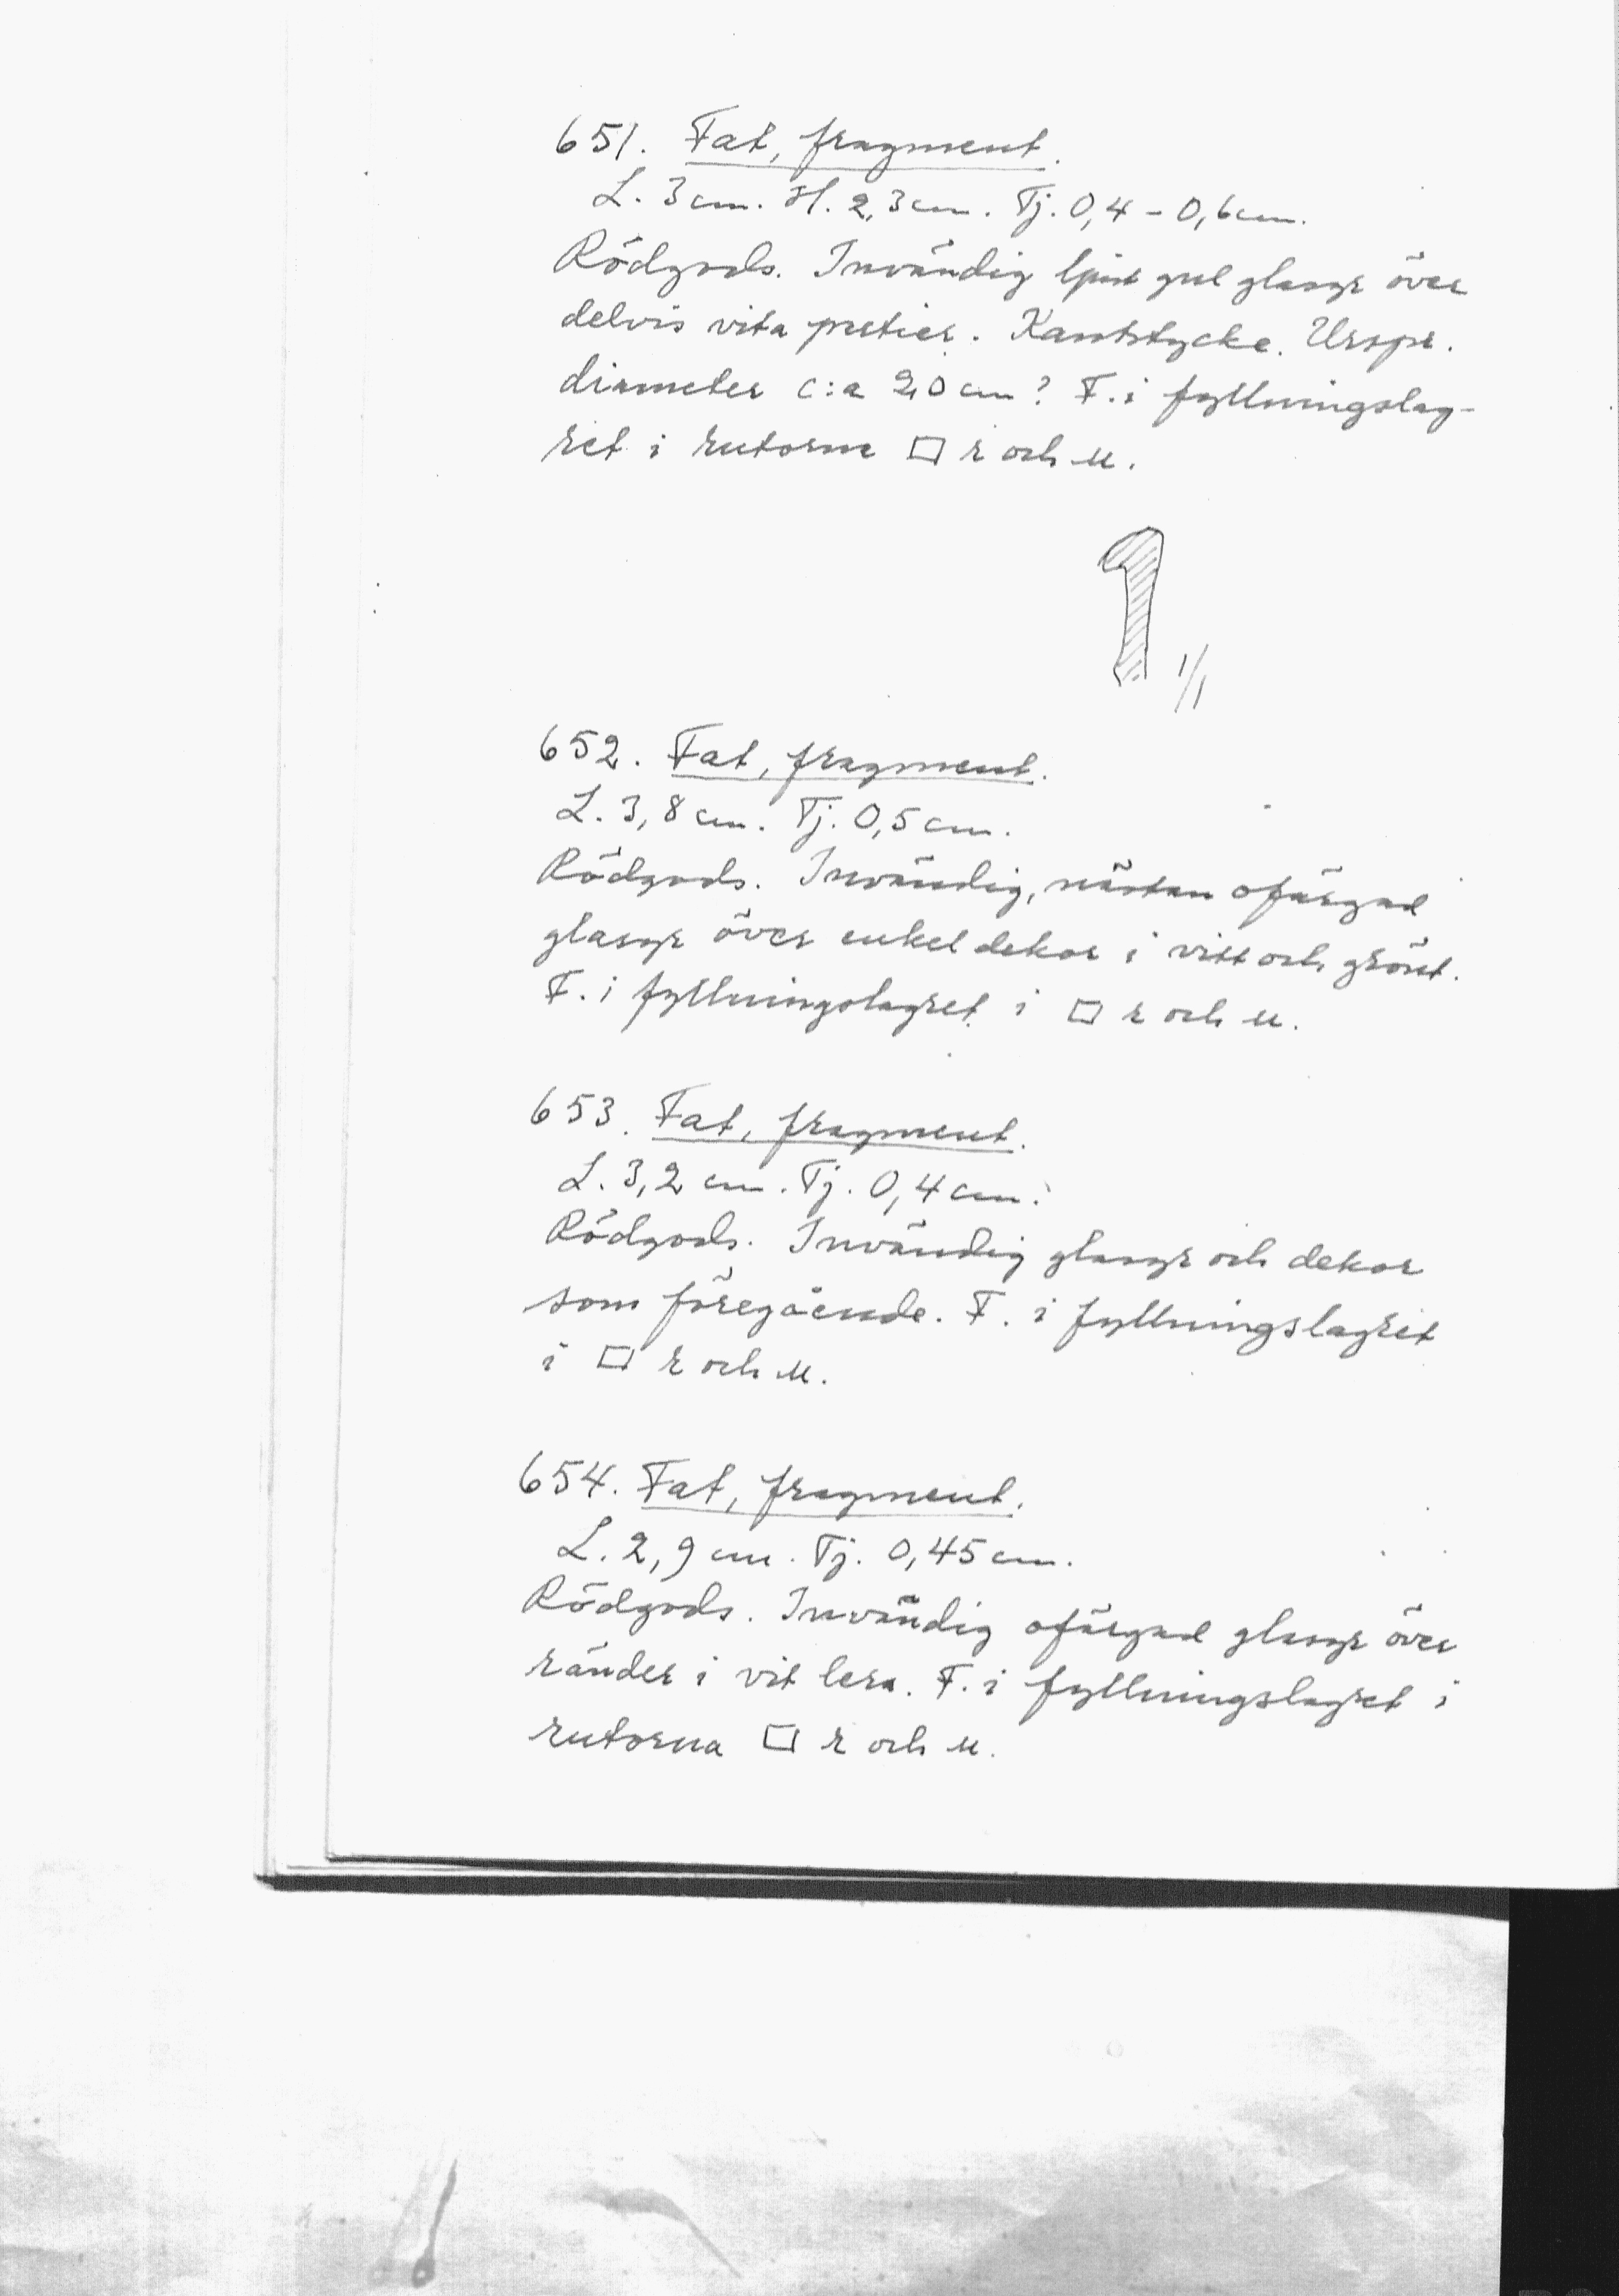 651. Fat, fragment.
L. 3 cm. H. 2,3 cm. Tj. 0,4 - 0,6 cm.
Rödgods. Invändig ljust gul glasyr över
delvis vita partier. Kantstycke. Urspr.
diameter c:a 20 cm? F. i fyllningslag-
ret i rutorna □ r och u.
1/1
652. Fat, fragment.
L. 3,8 cm. Tj. 0,5 cm.
Rödgods. Invändig, nästan ofärgad
glasyr över enkel dekor i vitt och grönt.
F. i fyllningslagret i □ r och u.
653. Fat, fragment.
L. 3,2 cm. Tj. 0,4 cm.
Rödgods. Invändig glasyr och dekor
som föregående. F. i fyllningslagret
i □ r och u.
654. Fat, fragment.
L. 2,9 cm. Tj. 0,45 cm.
Rödgods. Invändig ofärgad glasyr över
ränder i vit lera. F. i fyllningslagret i
rutorna □ r och u.